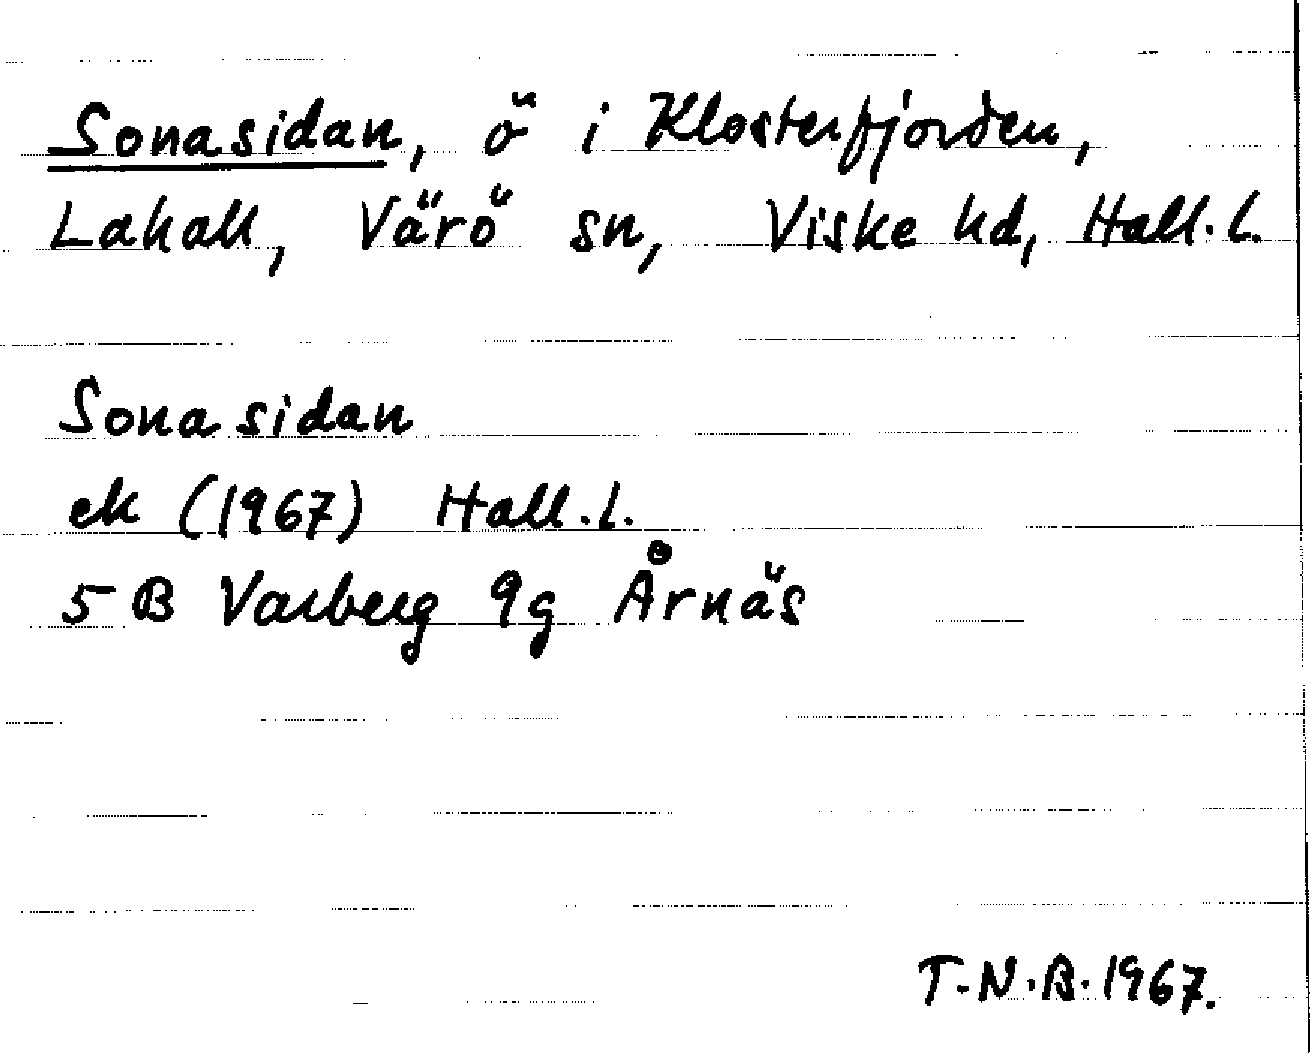 Sonasidan, ö i Klosterfjorden,
Lahall, Värö sn, Viske hd, Hall. l.
Sonasidan
ek (1967) Hall. l.
5 B Varberg 9g Årnäs
T.N.B. 1967.